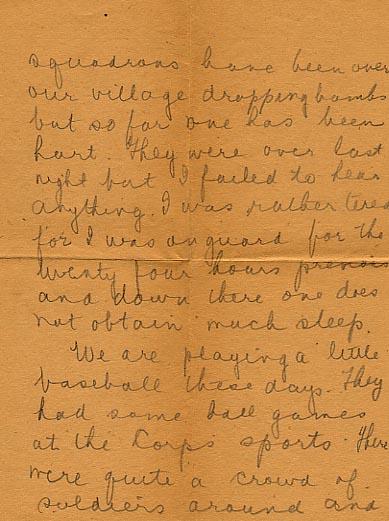 squadrons have been over
our village dropping bombs
but so far one has been
hurt. They were over last
night but I failed to hear
anything. I was rather tired
for I was on guard for the
twenty four hours previous
and down there one does
not obtain much sleep.
We are playing a little
baseball these days. They
had some ball games
at the Corps sports. There
were quite a crowd of
soldiers around and